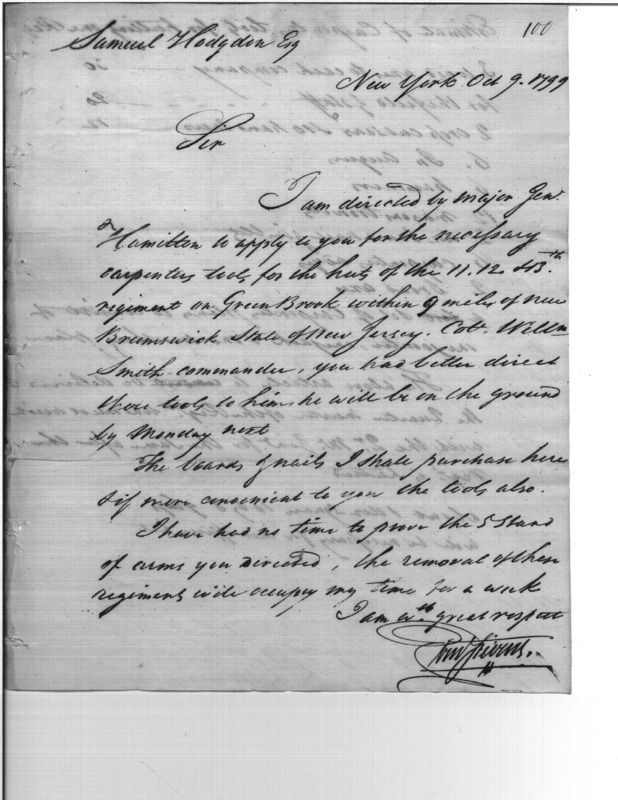 100
Samuel Hodgdon Esq
New York Oct 9. 1799
Sir
I am directed by Major Genl.
Hamilton to apply to you for the necessary
carpenters tools for the huts of the 11. 12. & 13.th
regiment on Green Brook within 9 miles of New
Brunswick State of New Jersey. Colo. Willm
Smith commander, you had better direct
those tools to him, he will be on the ground
by Monday next
The boards & nails I shall purchase here
& if more convenient to you the tools also.
I have had no time to prove the 5 Stand
of arms you directed, the removal of these
regiments will occupy my time for a week
I am wth. great respect
Ebnr Stevens.